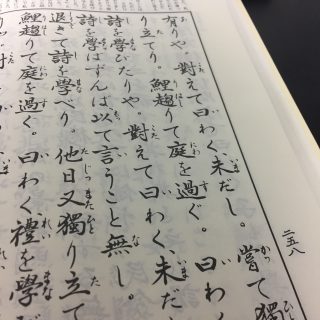 有りや。對えて曰わく、未だし。嘗て獨
り立てり。鯉趨りて庭を過ぐ。曰わく
詩を學びたりや。對えて曰わく、未だ
詩を學ばずんば以て言うこと無し。
退きて詩を學べり。他日又獨り立て
鯉趨りて庭を過ぐ。曰わく、禮を學
二五八